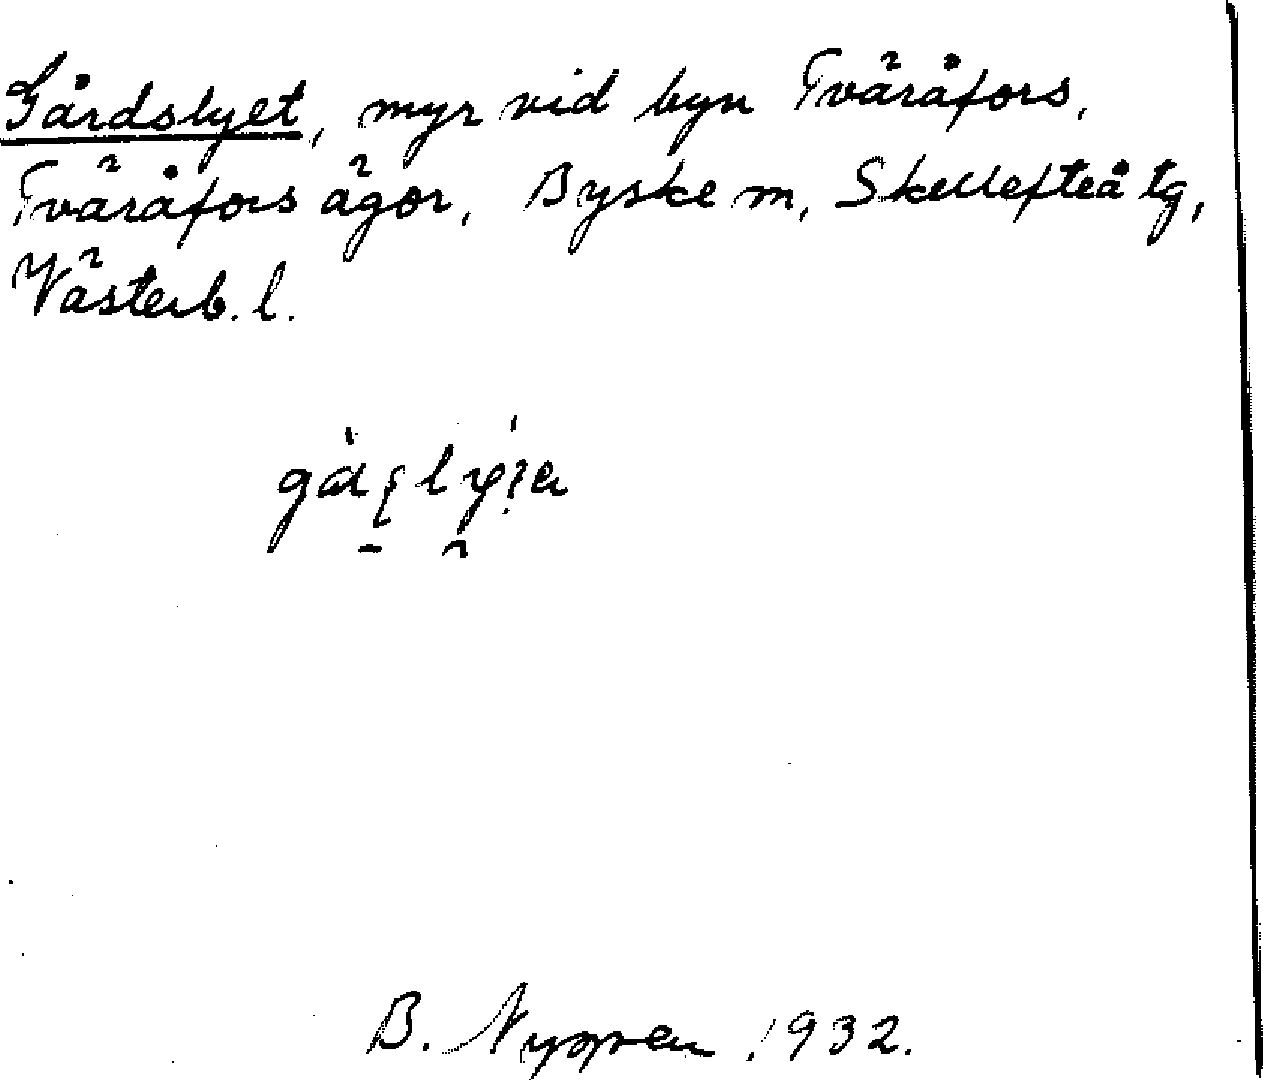 Gårdslyet, myr vid byn Tväråfors,
Tväråfors ägor, Byske m, Skellefteå tg,
Västerb. l.
B. Nyppen 1932.